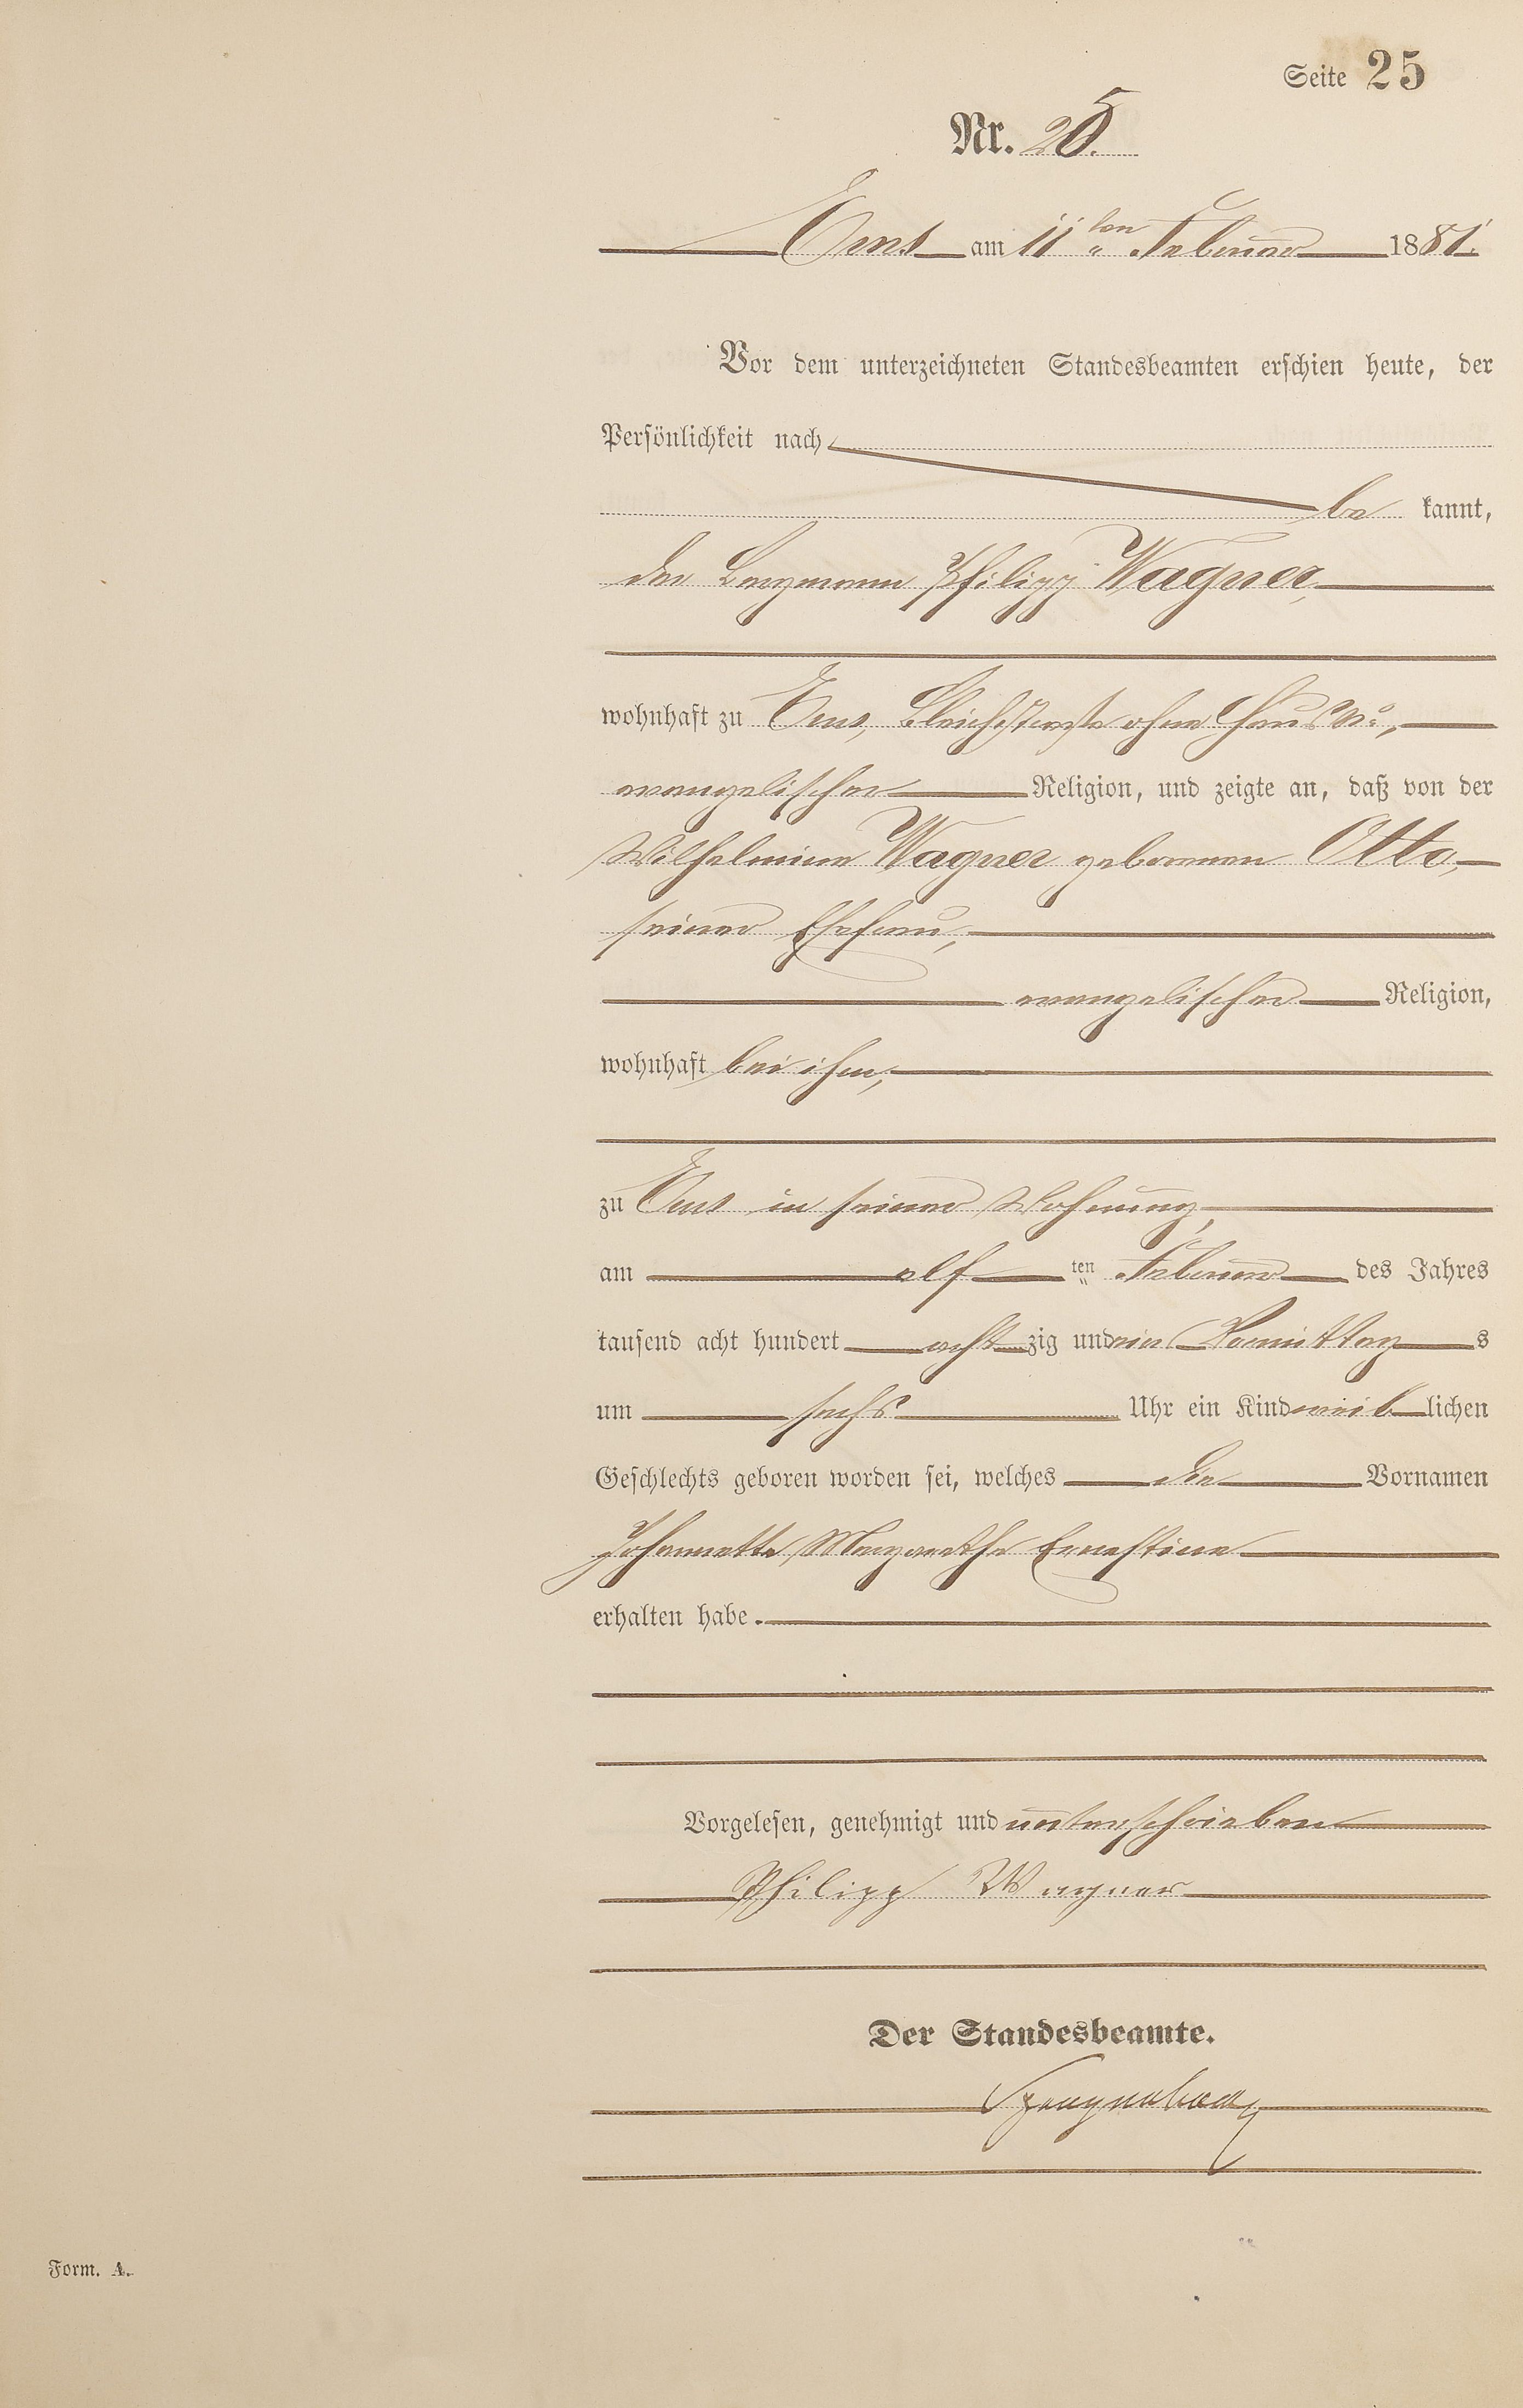 Seite 25
Nr. 25.
Ems am 11ten Februar 1881.
Vor dem unterzeichneten Standesbeamten erschien heute, der
Persönlichkeit nach
be kannt,
der Bergmann Philipp Wagner,
wohnhaft zu Ems, Bleichstraße ohne Haus No,
evangelischer Religion, und zeigte an, daß von der
Wilhelmine Wagner geborenen Otto,
seiner Ehefrau,
evangelischer Religion,
wohnhaft bei ihm,
zu Ems in seiner Wohnung,
am elf ten Februar des Jahres
tausend acht hundert acht zig und ein Vormittag s
um sechs Uhr ein Kind weib lichen
Geschlechts geboren worden sei, welches die Vornamen
Johannette Margarethe Ernestine
erhalten habe.
Vorgelesen, genehmigt und unterschrieben
Philipp Wagner
Der Standesbeamte.
Form. A.